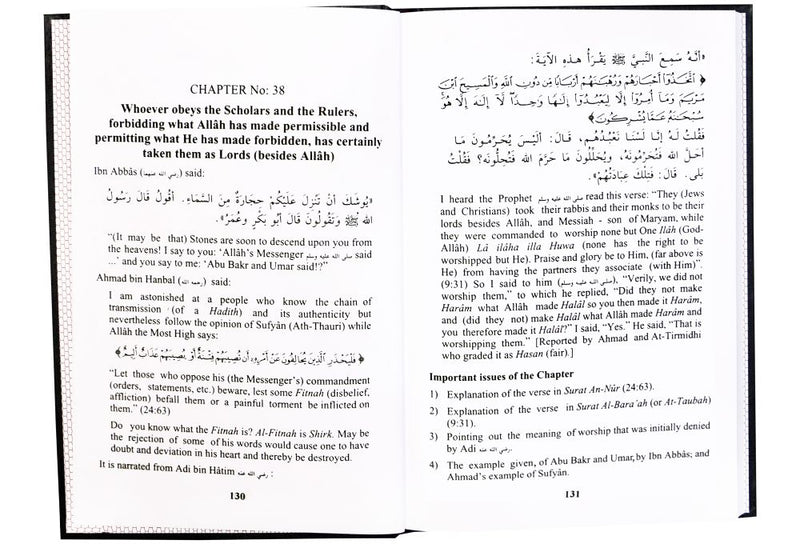 CHAPTER No: 38
Whoever obeys the Scholars and the Rulers,
forbidding what Allâh has made permissible and
permitting what He has made forbidden, has certainly
taken them as Lords (besides Allâh)
Ibn Abbâs (رضي الله عنهما) said:
«يُوشَكُ أَنْ تَنْزِلَ عَلَيْكُمْ حِجَارَةٌ مِنَ السَّمَاءِ. أَقُولُ قَالَ رَسُولُ
الله ﷺ وَتَقُولُونَ قَالَ أَبُو بَكْرٍ وَعُمَرُ».
“(It may be that) Stones are soon to descend upon you from
the heavens! I say to you: ‘Allâh’s Messenger صلى الله عليه وسلم said
...’ and you say to me: ‘Abu Bakr and Umar said!?”
Ahmad bin Hanbal (رحمه الله) said:
I am astonished at a people who know the chain of
transmission (of a Hadith) and its authenticity but
nevertheless follow the opinion of Sufyân (Ath-Thauri) while
Allâh the Most High says:
﴿ فَلْيَحْذَرِ الَّذِينَ يُخَالِفُونَ عَنْ أَمْرِهِ أَن تُصِيبَهُمْ فِتْنَةٌ أَوْ يُصِيبَهُمْ عَذَابٌ أَلِيمٌ ﴾
“Let those who oppose his (the Messenger’s) commandment
(orders, statements, etc.) beware, lest some Fitnah (disbelief,
affliction) befall them or a painful torment be inflicted on
them.” (24:63)
Do you know what the Fitnah is? Al-Fitnah is Shirk. May be
the rejection of some of his words would cause one to have
doubt and deviation in his heart and thereby be destroyed.
It is narrated from Adi bin Hâtim رضي الله عنه :
130
«أَنَّهُ سَمِعَ النَّبِيَّ ﷺ يَقْرَأُ هَذِهِ الآيَةَ:
﴿ اتَّخَذُوا أَحْبَارَهُمْ وَرُهْبَانَهُمْ أَرْبَابًا مِن دُونِ اللَّهِ وَالْمَسِيحَ ابْنَ
مَرْيَمَ وَمَا أُمِرُوا إِلَّا لِيَعْبُدُوا إِلَٰهًا وَاحِدًا لَا إِلَٰهَ إِلَّا هُوَ
سُبْحَانَهُ عَمَّا يُشْرِكُونَ﴾
فَقُلْتُ لَهُ إِنَّا لَسْنَا نَعْبُدُهُمْ، قَالَ: أَلَيْسَ يُحَرِّمُونَ مَا
أَحَلَّ اللهُ فَتُحَرِّمُونَهُ، وَيُحِلُّونَ مَا حَرَّمَ اللهُ فَتُحِلُّونَهُ؟ فَقُلْتُ
بَلَى. قَالَ: فَتِلْكَ عِبَادَتُهُمْ».
I heard the Prophet صلى الله عليه وسلم read this verse: “They (Jews
and Christians) took their rabbis and their monks to be their
lords besides Allâh, and Messiah - son of Maryam, while
they were commanded to worship none but One Ilâh (God-
Allâh) Lâ ilâha illa Huwa (none has the right to be
worshipped but He). Praise and glory be to Him, (far above is
He) from having the partners they associate (with Him)”.
(9:31) So I said to him (صلى الله عليه وسلم), “Verily, we did not
worship them,” to which he replied, “Did they not make
Harâm what Allâh made Halâl so you then made it Harâm,
and (did they not) make Halâl what Allâh made Harâm and
you therefore made it Halâl?” I said, “Yes.” He said, “That is
worshipping them.” [Reported by Ahmad and At-Tirmidhi
who graded it as Hasan (fair).]
Important issues of the Chapter
1) Explanation of the verse in Surat An-Nûr (24:63).
2) Explanation of the verse in Surat Al-Bara’ah (or At-Taubah)
(9:31).
3) Pointing out the meaning of worship that was initially denied
by Adi رضي الله عنه.
4) The example given, of Abu Bakr and Umar, by Ibn Abbâs; and
Ahmad’s example of Sufyân.
131